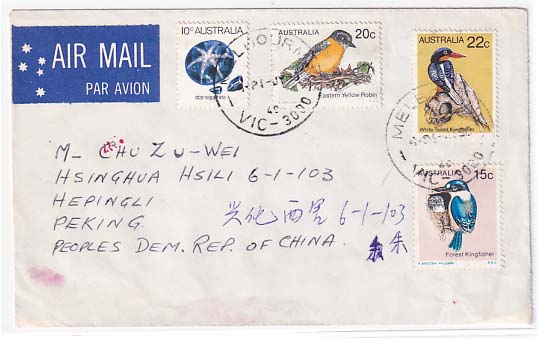 AIR MAIL
PAR AVION
10c AUSTRALIA
star sapphire
AUSTRALIA
20c
Eastern Yellow Robin
AUSTRALIA
22c
White Tailed Kingfisher
AUSTRALIA
15c
Forest Kingfisher
MELBOURNE
VIC-3000
VIC-3000
M- CHU ZU-WEI
HSINGHUA HSILI 6-1-103
HEPINGLI
PEKING.
兴化西里 6-1-103
PEOPLES DEM. REP. OF CHINA.
朱